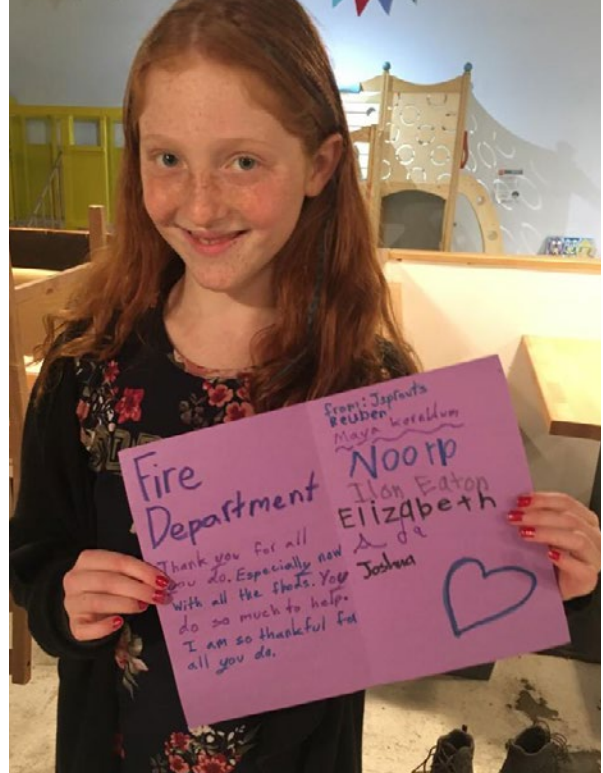 Fire
Department
Thank you for all
you do. Especially now
with all the flods. You
do so much to help.
I am so thankful for
all you do.
from: Jsprouts
Reuben
Maya
Noorp
Ilan Eaton
Elizabeth
Ada
Joshua